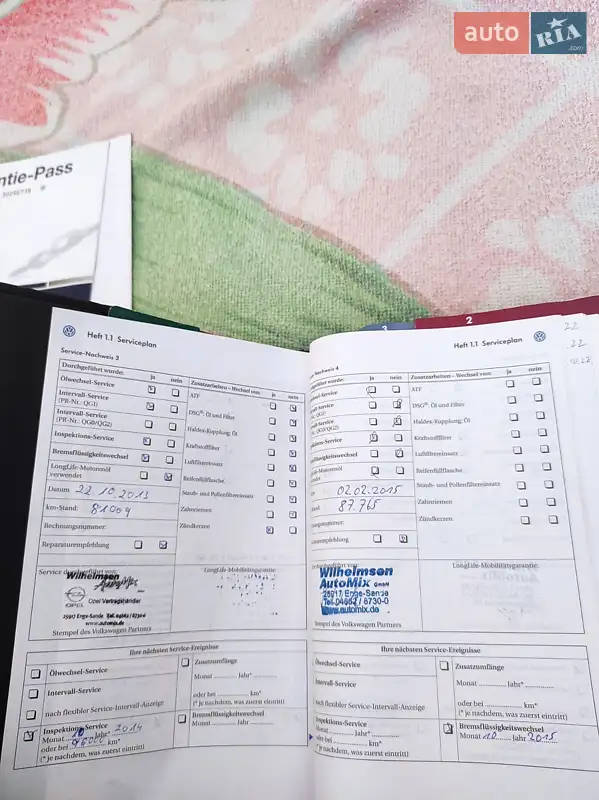 auto RIA .com
ntie-Pass
3
2
Heft 1.1 Serviceplan
Service-Nachweis 3
Durchgeführt wurde: ja nein
Ölwechsel-Service
Intervall-Service
(PR-Nr.: QG1)
Intervall-Service
(PR-Nr.: QG0/QG2)
Inspektions-Service
Bremsflüssigkeitswechsel
LongLife-Motorenöl
verwendet
Datum 22.10.2013
km-Stand: 81004
Rechnungsnummer:
Reparaturempfehlung
Zusatzarbeiten – Wechsel von: ja nein
ATF
DSG®: Öl und Filter
Haldex-Kupplung: Öl
Kraftstofffilter
Luftfiltereinsatz
Reifenfüllflasche
Staub- und Pollenfiltereinsatz
Zahnriemen
Zündkerzen
Service durchgeführt von:
Wilhelmsen
AutoMix
OPEL Opel Vertragshändler
25917 Enge-Sande Tel. 04662 / 8730-0
www.automix.de
Stempel des Volkswagen Partners
LongLife-Mobilitätsgarantie:
Ihre nächsten Service-Ereignisse
Ölwechsel-Service
Intervall-Service
nach flexibler Service-Intervall-Anzeige
Inspektions-Service
Monat 10 Jahr* 2014
oder bei 96000 km*
(* je nachdem, was zuerst eintritt)
Zusatzumfänge
Monat Jahr*
oder bei km*
(* je nachdem, was zuerst eintritt)
Bremsflüssigkeitswechsel
Monat Jahr
Heft 1.1 Serviceplan
22
22
Service-Nachweis 4
Durchgeführt wurde: ja nein
Ölwechsel-Service
Intervall-Service
QG1)
Intervall-Service
QG0/QG2)
Inspektions-Service
Bremsflüssigkeitswechsel
LongLife-Motorenöl
02.02.2015
87.765
Zusatzarbeiten – Wechsel von: ja nein
ATF
DSG®: Öl und Filter
Haldex-Kupplung: Öl
Kraftstofffilter
Luftfiltereinsatz
Reifenfüllflasche
Staub- und Pollenfiltereinsatz
Zahnriemen
Zündkerzen
Wilhelmsen
AutoMix GmbH
25917 Enge-Sande
Tel. 04662 / 8730-0
www.automix.de
Stempel des Volkswagen Partners
LongLife-Mobilitätsgarantie:
Ihre nächsten Service-Ereignisse
Ölwechsel-Service
Intervall-Service
nach flexibler Service-Intervall-Anzeige
Inspektions-Service
Monat Jahr*
oder bei km*
(* je nachdem, was zuerst eintritt)
Zusatzumfänge
Monat Jahr*
oder bei km*
(* je nachdem, was zuerst eintritt)
Bremsflüssigkeitswechsel
Monat 10 Jahr 2015